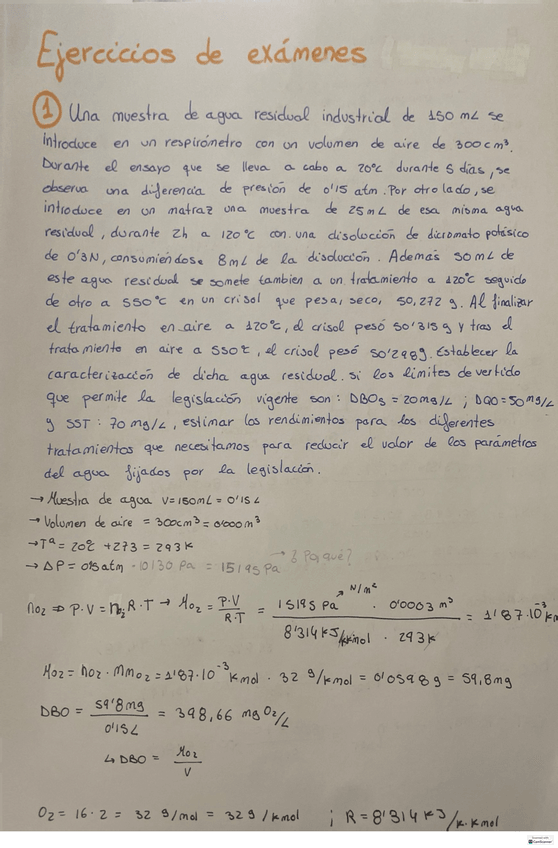 Ejercicios de exámenes
1 Una muestra de agua residual industrial de 150 mL se
introduce en un respirómetro con un volumen de aire de 300 cm³.
Durante el ensayo que se lleva a cabo a 20°C durante 5 días, se
observa una diferencia de presión de 0'15 atm. Por otro lado, se
introduce en un matraz una muestra de 25 mL de esa misma agua
residual, durante 2h a 120°C con una disolución de dicromato potásico
de 0'3N, consumiéndose 8mL de la disolución. Además 50 mL de
este agua residual se somete tambien a un tratamiento a 120°C seguido
de otro a 550°C en un crisol que pesa, seco, 50,272 g. Al finalizar
el tratamiento en aire a 120°C, el crisol pesó 50'315g y tras el
tratamiento en aire a 550°C, el crisol pesó 50'298g. Establecer la
caracterización de dicha agua residual. Si los límites de vertido
que permite la legislación vigente son: DBO₅ = 20mg/L ; DQO = 50 mg/L
y SST: 70 mg/L, estimar los rendimientos para los diferentes
tratamientos que necesitamos para reducir el valor de los parámetros
del agua fijados por la legislación.
→ Muestra de agua V=150mL = 0'15 L
→ Volumen de aire = 300cm³ = 0'000 m³
→ Tª = 20°C + 273 = 293 K
→ ΔP = 0'15 atm · 10130 Pa = 15195 Pa → ¿Por qué?
nO₂ ⇒ P·V = nO₂ R·T → MO₂ = P·V / R·T = 15195 Pa → N/m² · 0'0003 m³ / 8'314 KJ/K·Kmol · 293K = 1'87·10⁻³ Km
MO₂ = nO₂ · MmO₂ = 1'87·10⁻³ Kmol · 32 g/kmol = 0'0598 g = 59,8mg
DBO = 59'8 mg / 0'15L = 398,66 mg O₂/L
↳ DBO = MO₂ / V
O₂ = 16·2 = 32 g/mol = 32 g/kmol ; R = 8'314 KJ/K·Kmol
CamScanner